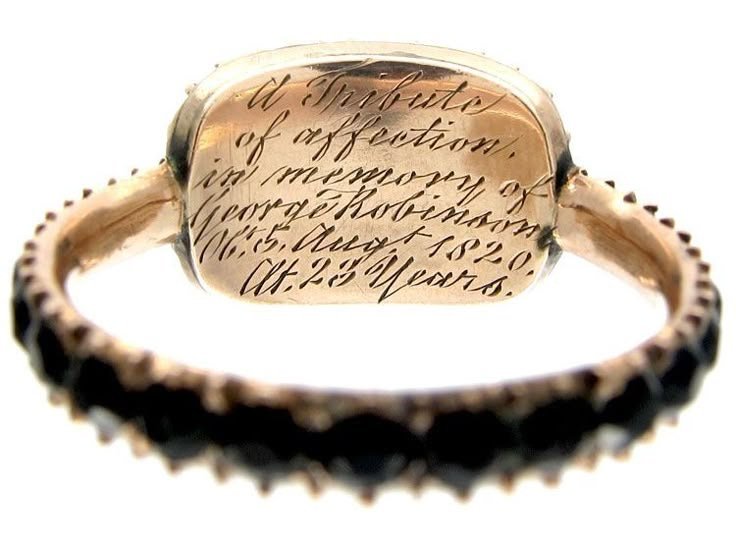 A Tribute
of affection.
in memory of
George Robinson
Ob. 5. Augt 1820.
Æt. 23 Years.